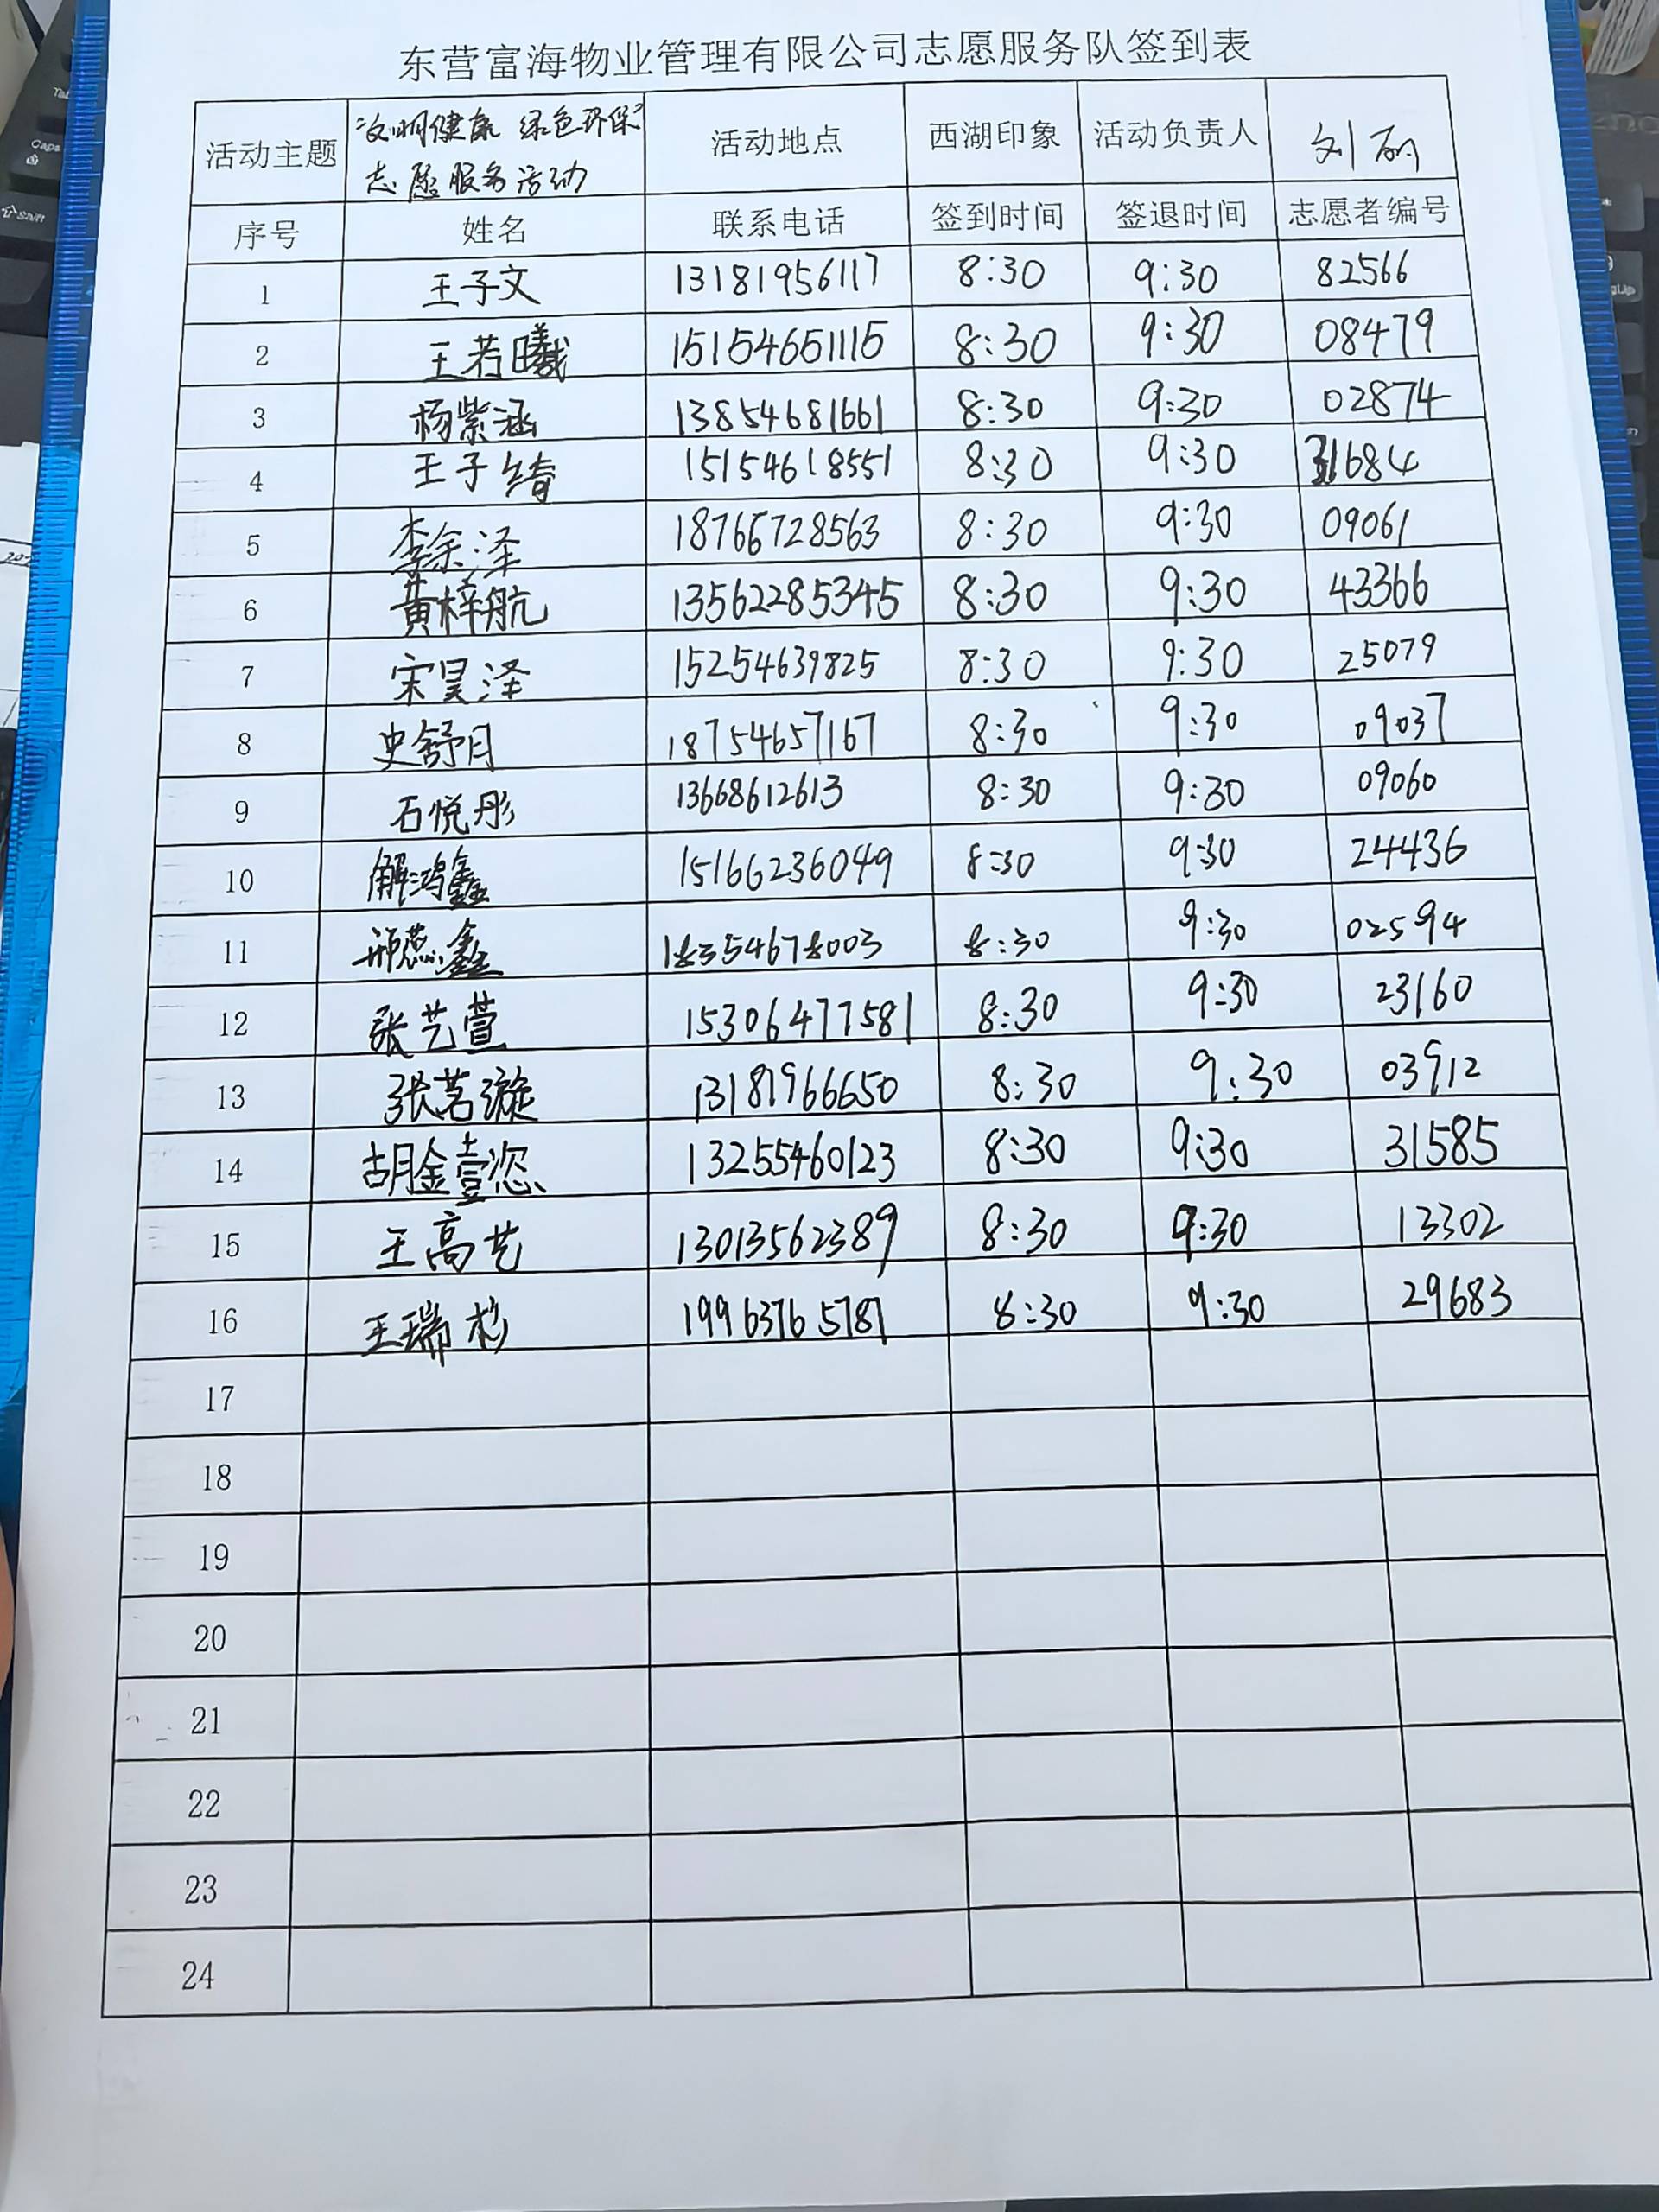 东营富海物业管理有限公司志愿服务队签到表
活动主题 "文明健康 绿色环保" 志愿服务活动 活动地点 西湖印象 活动负责人 刘
序号 姓名 联系电话 签到时间 签退时间 志愿者编号
1 王子文 13181956117 8:30 9:30 82566
2 王若曦 15154651115 8:30 9:30 08479
3 杨紫涵 13854681661 8:30 9:30 02874
4 王子绮 15154618551 8:30 9:30 31684
5 李余泽 18766728563 8:30 9:30 09061
6 黄梓航 13562285345 8:30 9:30 43366
7 宋昊泽 15254639825 8:30 9:30 25079
8 史舒月 18754657167 8:30 9:30 09037
9 石悦彤 13668612613 8:30 9:30 09060
10 解鸿鑫 15166236049 8:30 9:30 24436
11 邢燕鑫 18354678003 8:30 9:30 02594
12 张艺萱 15306477581 8:30 9:30 23160
13 张茗漩 13181966650 8:30 9:30 03912
14 胡金壹恣 13255460123 8:30 9:30 31585
15 王高艺 13013562389 8:30 9:30 13302
16 王瑞杉 19963765787 8:30 9:30 29683
17
18
19
20
21
22
23
24